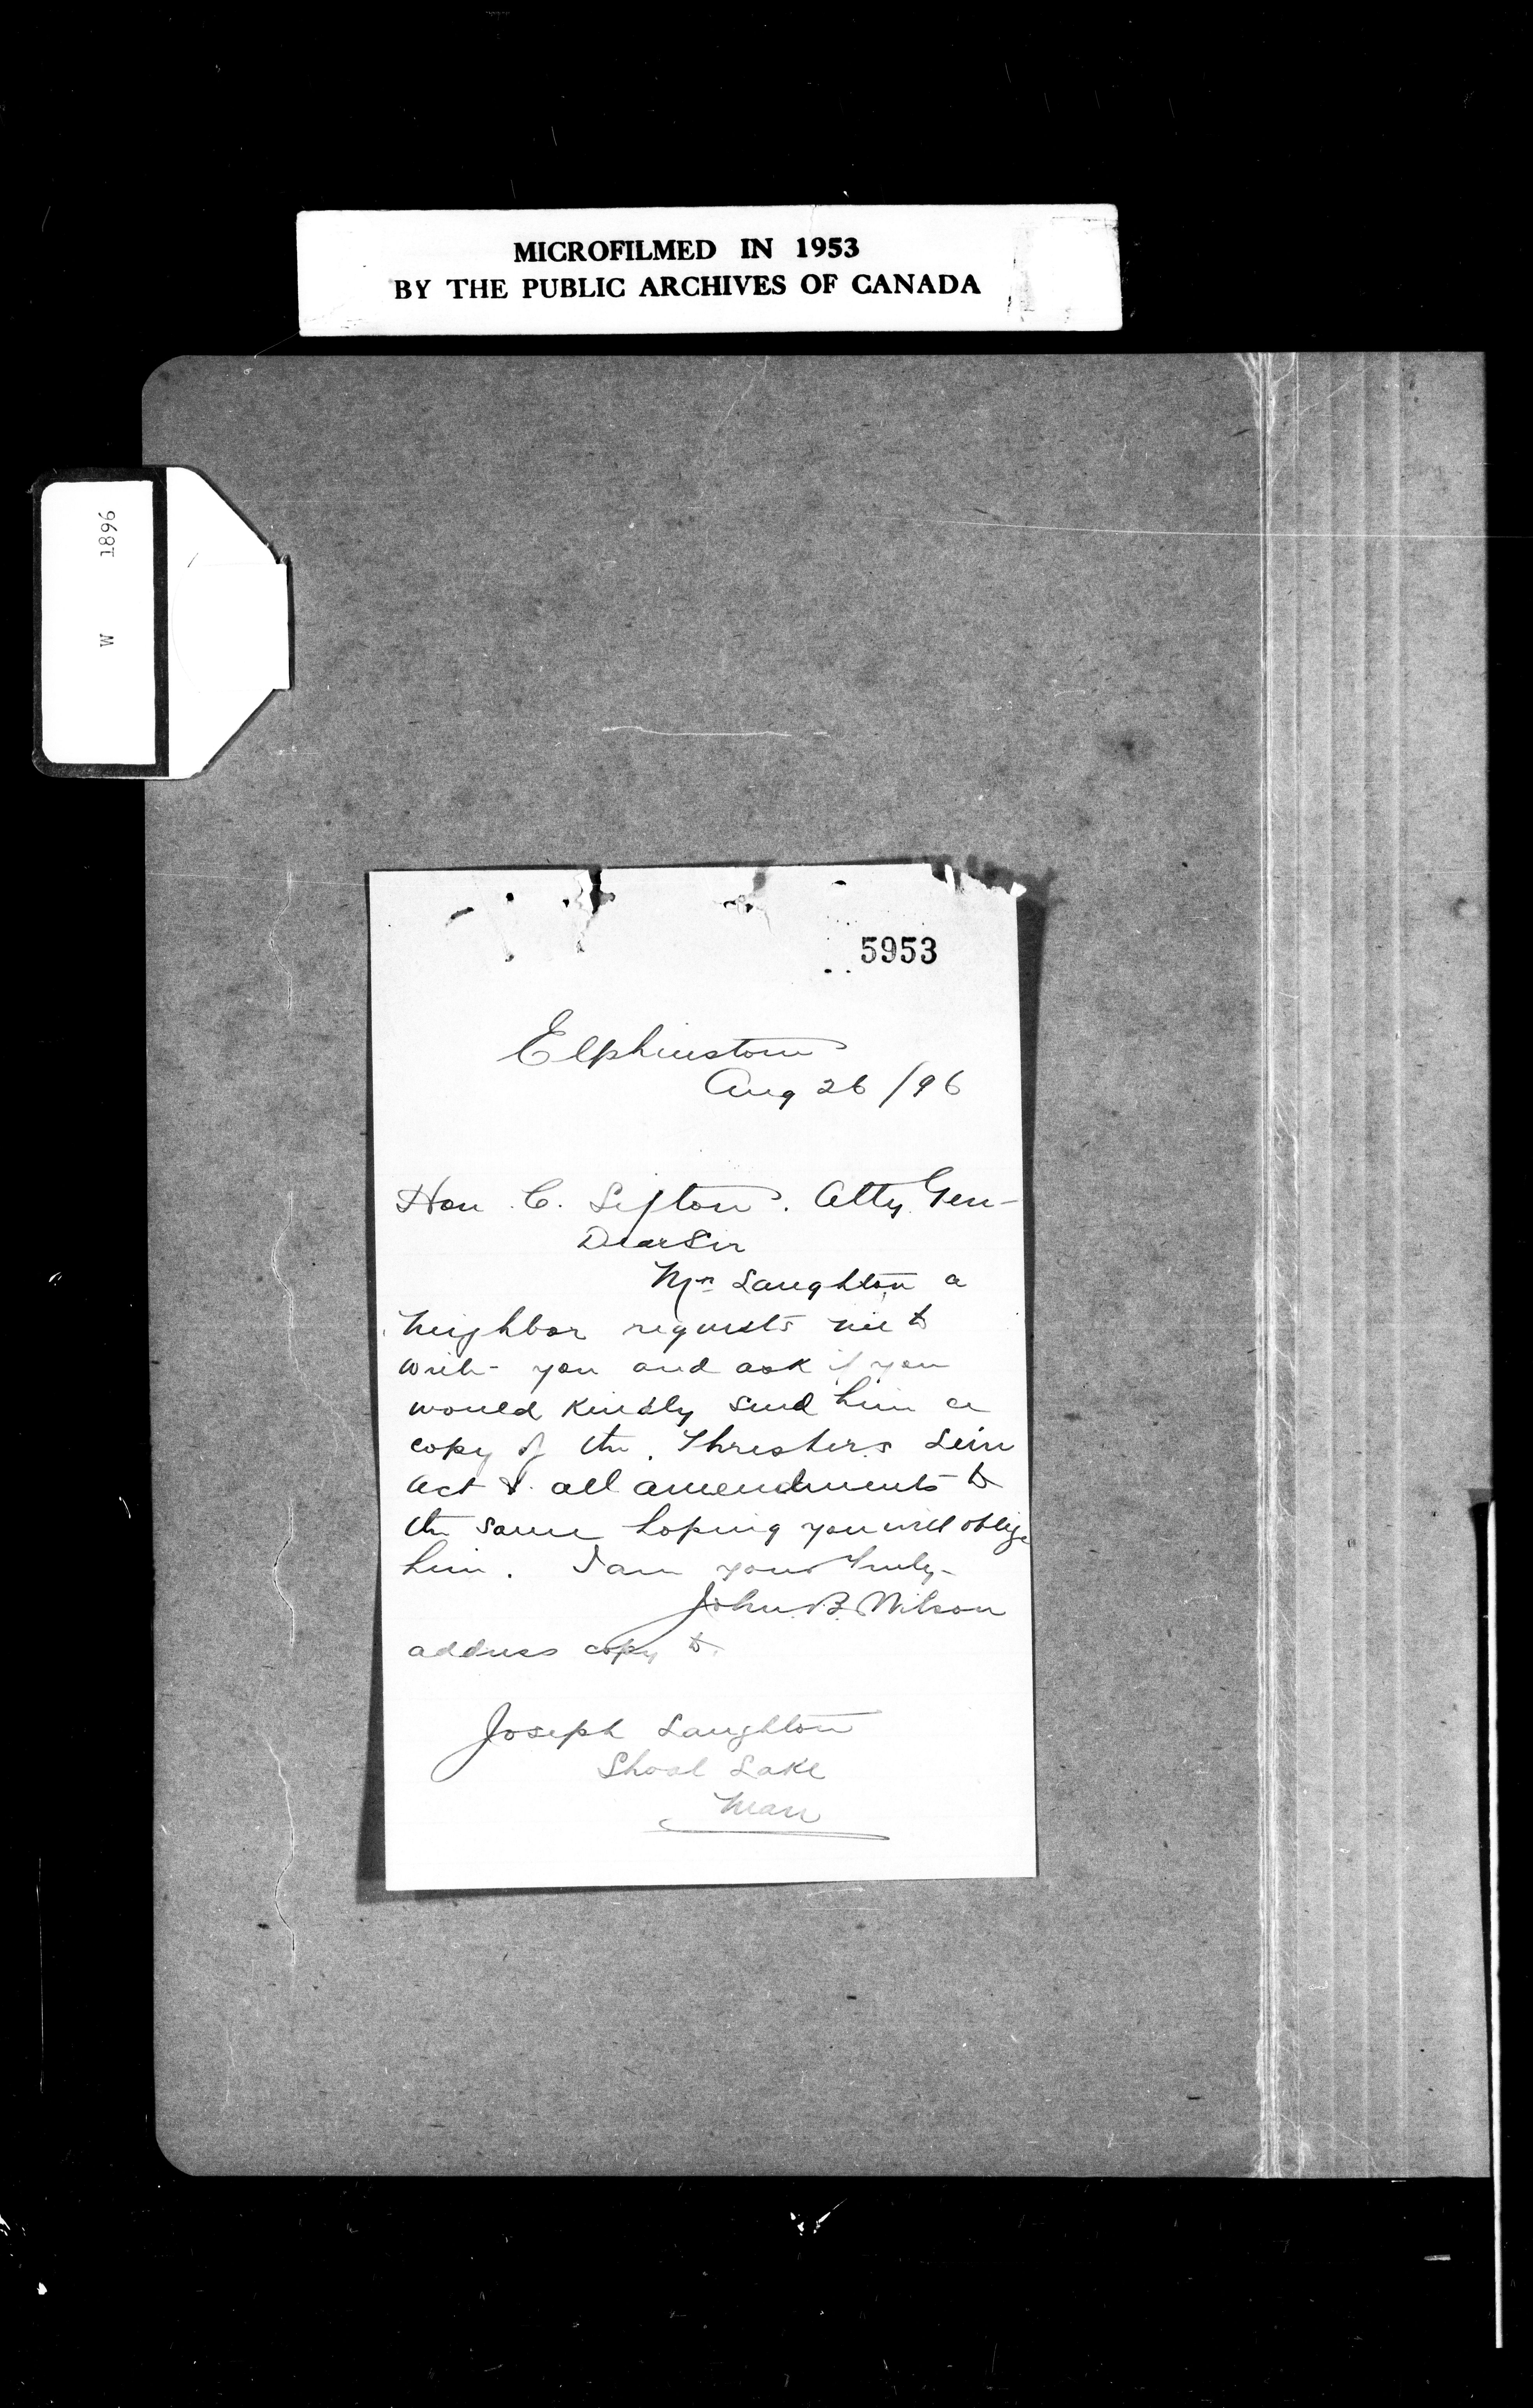 MICROFILMED IN 1953
BY THE PUBLIC ARCHIVES OF CANADA
W 1896
5953
Elphinstone
Aug 26/96
Hon. C. Sifton. Atty Gen-
Dear Sir
Mr Laughton a
neighbor requests me to
write you and ask if you
would kindly send him a
copy of the Threshers Lein
act & all amendments to
the same hoping you will oblige
him. I am yours truly-
John B. Wilson
address copy to.
Joseph Laughton
Shoal Lake
Man